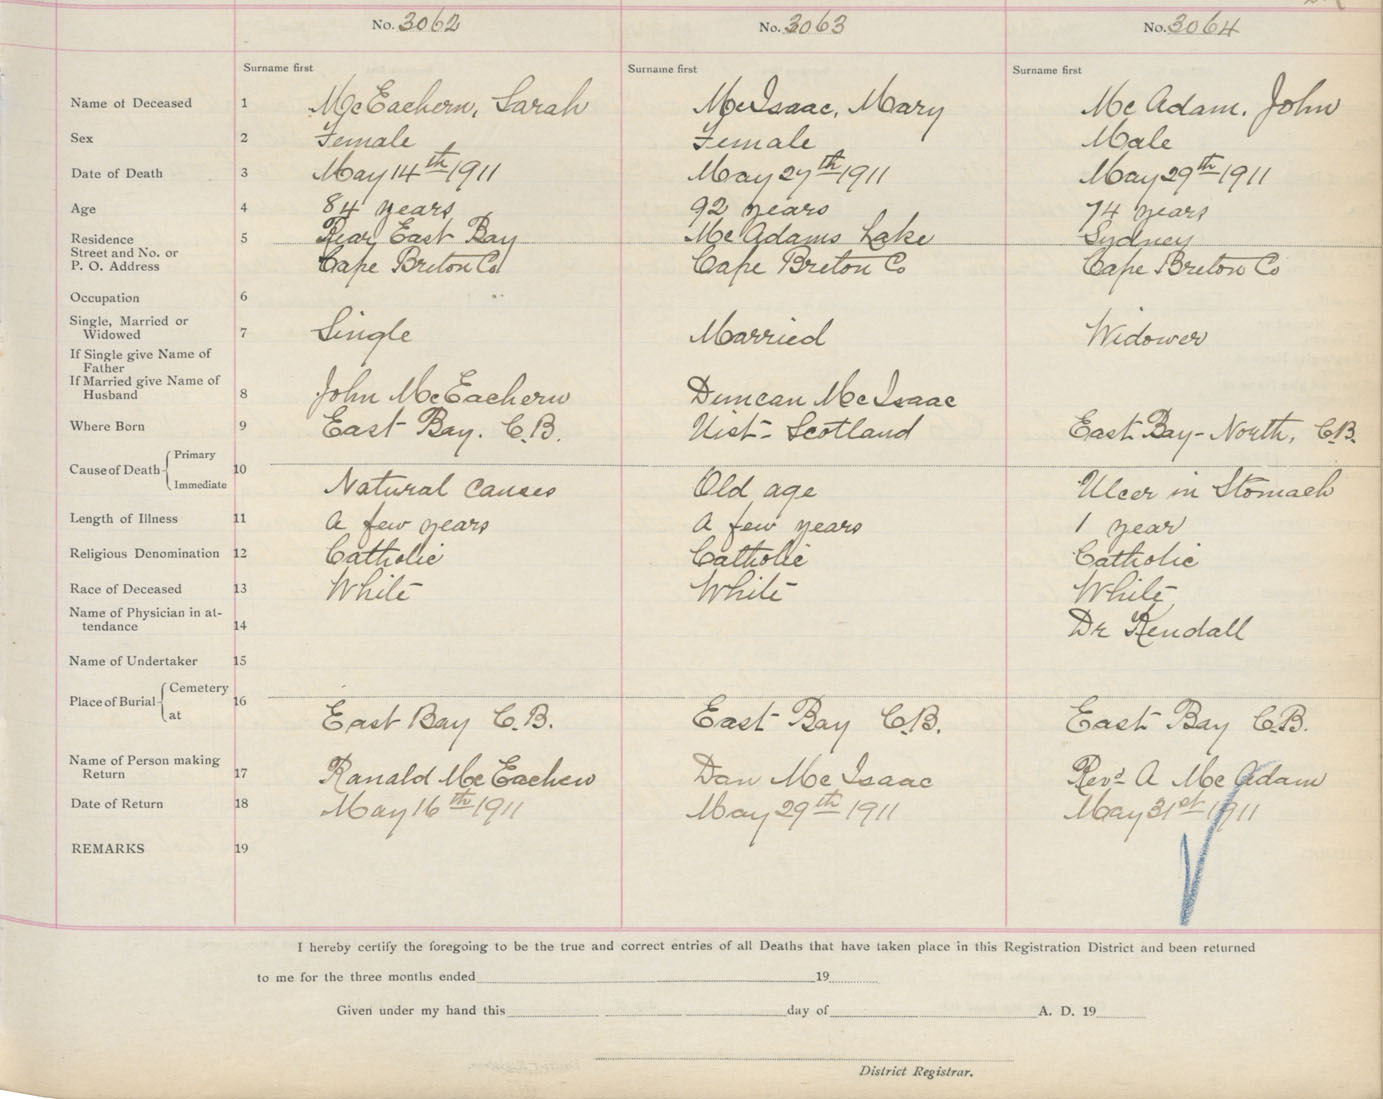 No. 3062 No. 3063 No. 3064
Surname first Surname first Surname first
Name of Deceased 1 McEachern, Sarah McIsaac, Mary McAdam, John
Sex 2 Female Female Male
Date of Death 3 May 14th 1911 May 27th 1911 May 29th 1911
Age 4 84 years 92 years 74 years
Residence 5 Rear East Bay McAdams Lake Sydney
Street and No. or
P. O. Address Cape Breton Co Cape Breton Co Cape Breton Co
Occupation 6
Single, Married or
Widowed 7 Single Married Widower
If Single give Name of
Father
If Married give Name of
Husband 8 John McEachern Duncan McIsaac
Where Born 9 East Bay. C.B. Uist - Scotland East Bay - North, C.B.
Cause of Death Primary 10
Immediate Natural causes Old age Ulcer in Stomach
Length of Illness 11 A few years A few years 1 year
Religious Denomination 12 Catholic Catholic Catholic
Race of Deceased 13 White White White
Name of Physician in at-
tendance 14 Dr Kendall
Name of Undertaker 15
Place of Burial Cemetery 16
at East Bay C.B. East Bay C.B. East Bay C.B.
Name of Person making
Return 17 Ranald McEachern Dan McIsaac Revd A McAdam
Date of Return 18 May 16th 1911 May 29th 1911 May 31st 1911
REMARKS 19
I hereby certify the foregoing to be the true and correct entries of all Deaths that have taken place in this Registration District and been returned
to me for the three months ended 19
Given under my hand this day of A. D. 19
District Registrar.